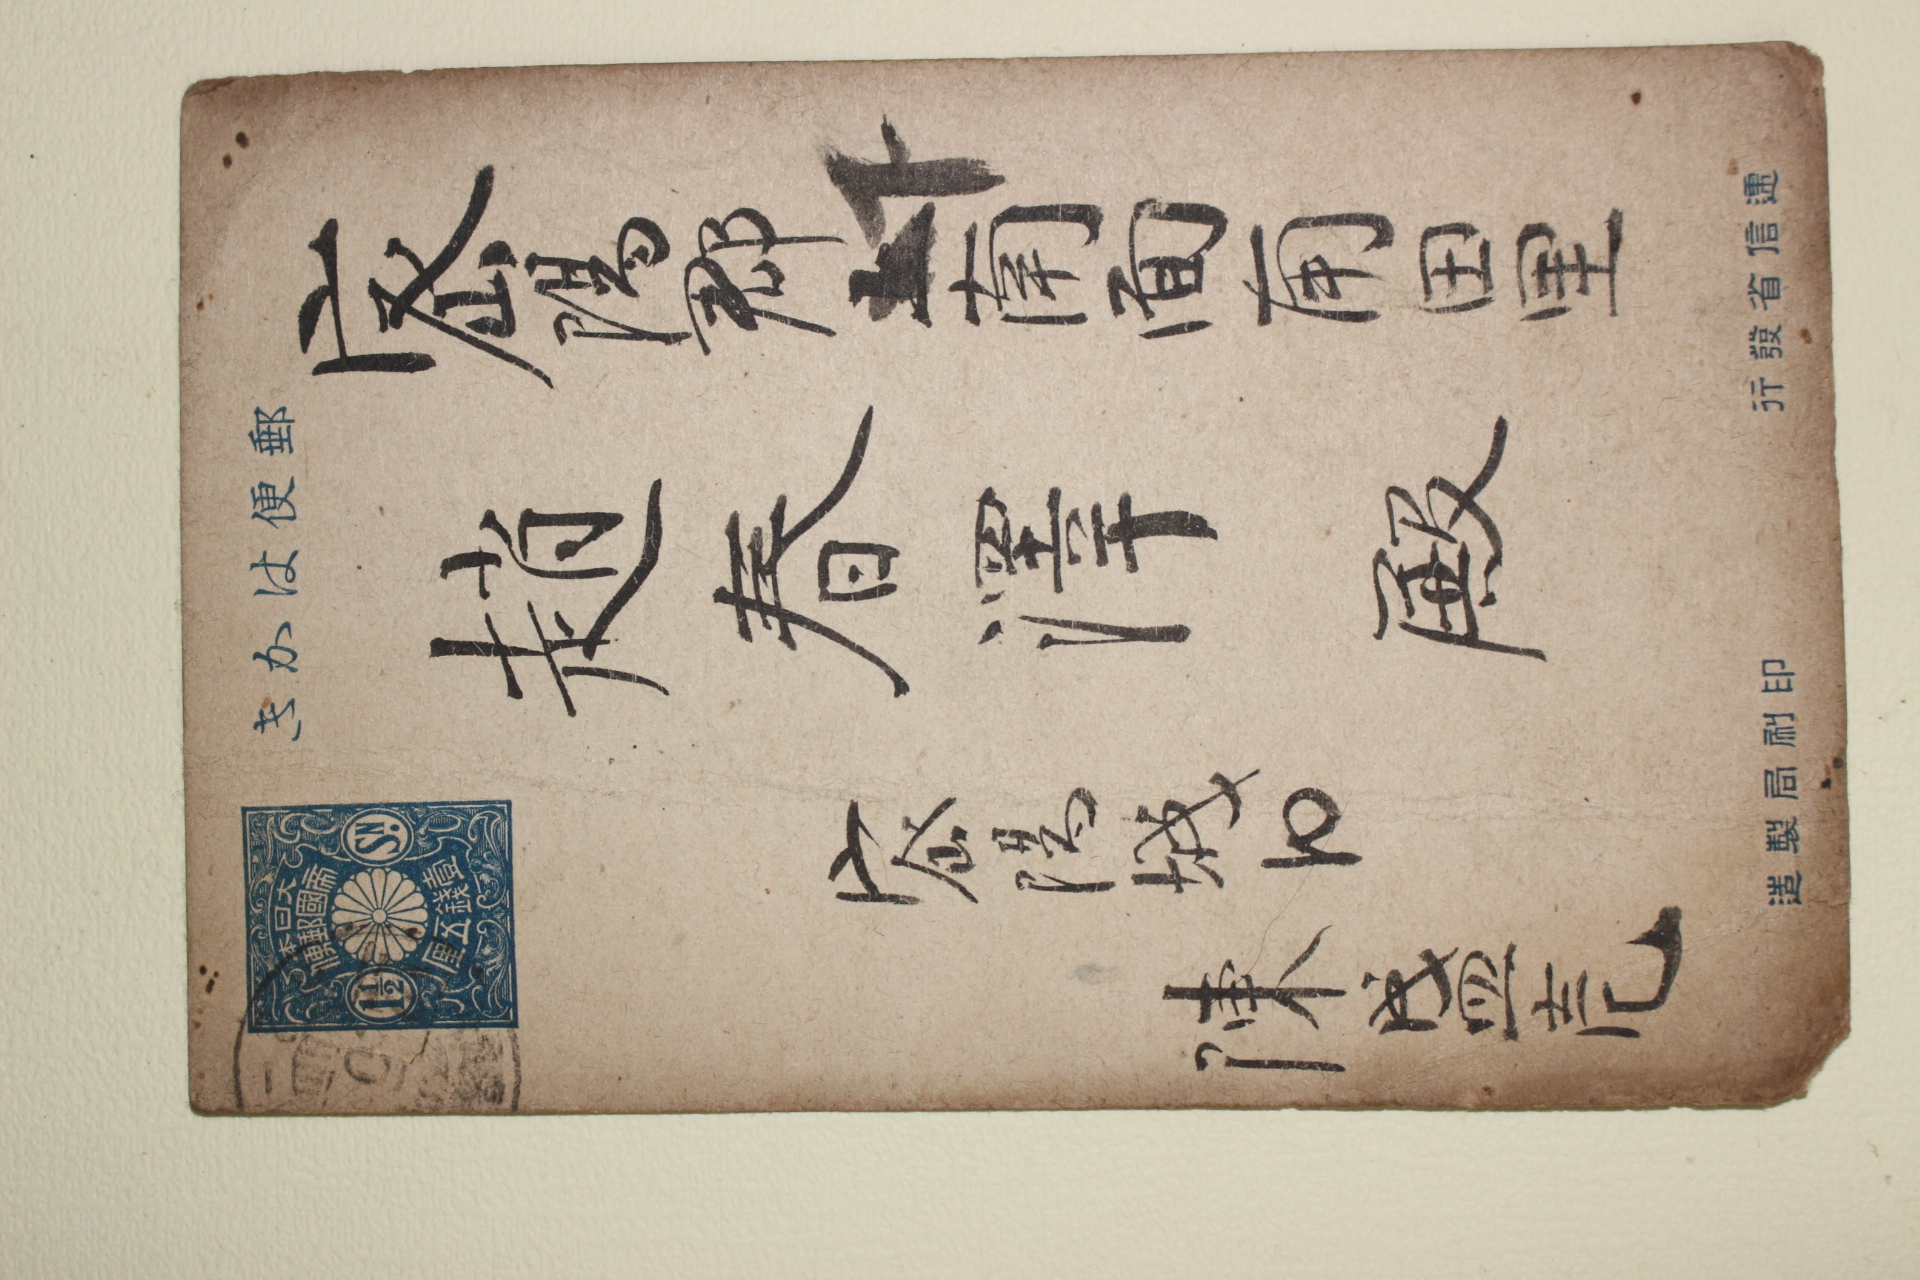 郵便はかき
大日本
帝國郵便
1½ SN.
壹錢五厘
密陽郡下南面南田里
趙春澤 殿
密陽城内
陳盛
逓信省發行
印刷局製造